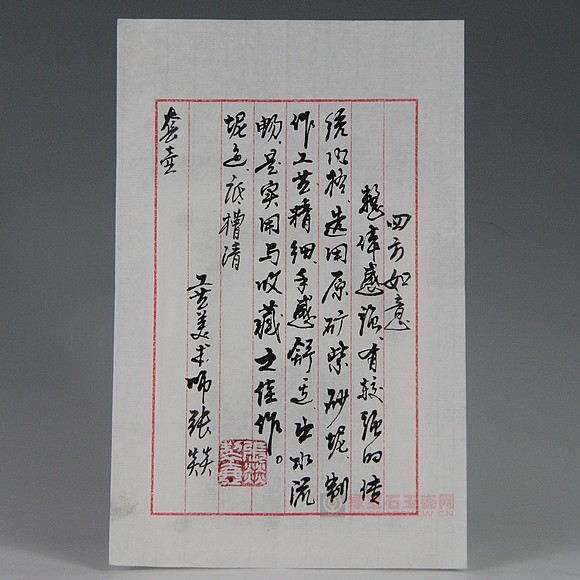 四方如意
整体感强，有较强的传
统内格，选用原矿紫砂泥，制
作工艺精细，手感舒适，出水流
畅，是实用与收藏之佳作。
泥色：底槽清
工艺美术师张燚
套壶